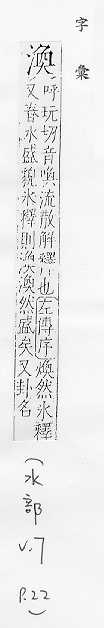 字彙
渙
呼玩切音喚流散解釋也左傳序渙然氷釋
又春水盛貌氷釋則渙渙然盛矣又卦名
(水部
V.7
P.22)